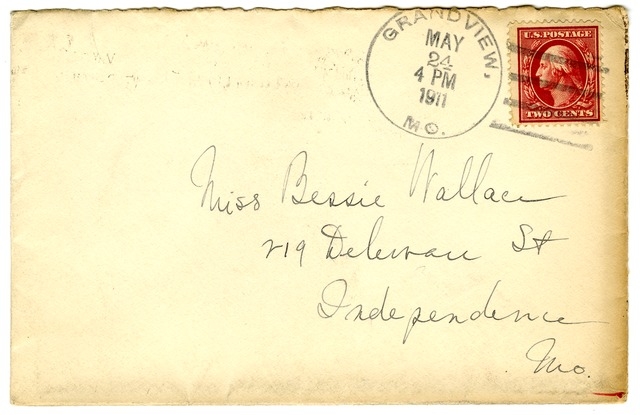 GRANDVIEW,
MAY
24
4 PM
1911
MO.
U.S. POSTAGE
TWO CENTS
Miss Bessie Wallace
219 Delewau St
Independence
Mo.